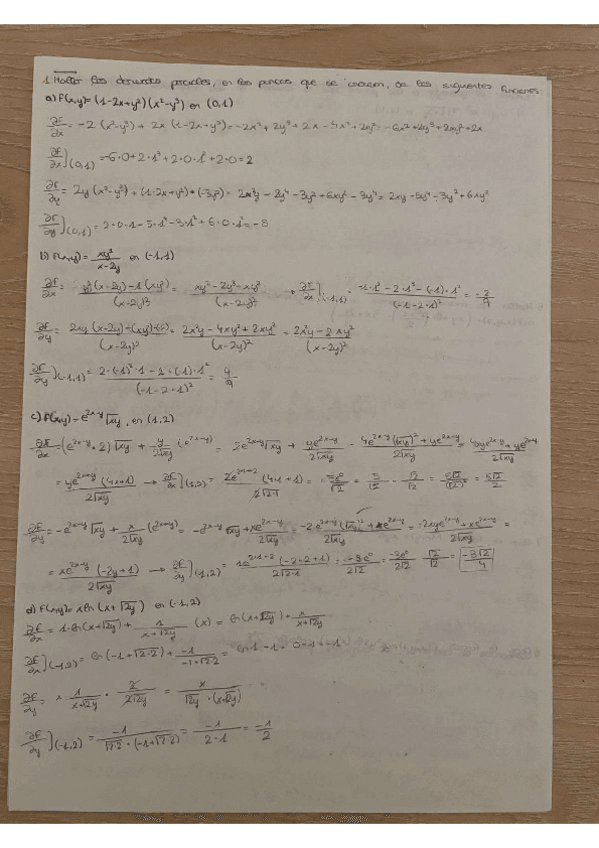 1. Hallar las derivadas parciales, en los puntos que se indican, de las siguientes funciones:
a) F(x,y)= (1-2x+y²)(x²-y³) en (0,1)
∂F/∂x = -2(x²-y³) + 2x(1-2x+y²) = -2x²+2y³+2x-4x²+2xy² = -6x²+2y³+2xy²+2x
∂F/∂x](0,1) = -6·0+2·1³+2·0·1²+2·0=2
∂F/∂y = 2y(x²-y³)+(1-2x+y²)·(-3y²) = 2x²y-2y⁴-3y²+6xy²-3y⁴ = 2xy-5y⁴-3y²+6xy²
∂F/∂y](0,1) = 2·0·1-5·1⁴-3·1²+6·0·1²=-8
b) F(x,y)= xy²/(x-2y) en (-1,1)
∂F/∂x = (y²(x-2y)-1(xy²))/(x-2y)² = (xy²-2y³-xy²)/(x-2y)² → ∂F/∂x](-1,1) = (-1·1²-2·1³-(-1)·1²)/(-1-2·1)² = -2/9
∂F/∂y = (2xy(x-2y)-(xy²)(-2))/(x-2y)² = (2x²y-4xy²+2xy²)/(x-2y)² = (2x²y-2xy²)/(x-2y)²
∂F/∂y](-1,1) = (2·(-1)²·1-2·(-1)·1²)/(-1-2·1)² = 4/9
c) F(x,y)=e^(2x-y)√xy, en (1,2)
∂F/∂x = (e^(2x-y)·2)√xy + y/(2√xy) (e^(2x-y)) = 2e^(2x-y)√xy + ye^(2x-y)/(2√xy) = (4e^(2x-y)(√xy)²+ye^(2x-y))/(2√xy) = (4xye^(2x-y)+ye^(2x-y))/(2√xy)
= ye^(2x-y)(4x+1)/(2√xy) → ∂F/∂x](1,2) = 2e^(2·1-2)(4·1+1)/(2√2·1) = 5e⁰/√2 = 5/√2 · √2/√2 = 5√2/(√2)² = 5√2/2
∂F/∂y = -e^(2x-y)√xy + x/(2√xy) (e^(2x-y)) = -e^(2x-y)√xy + xe^(2x-y)/(2√xy) = (-2e^(2x-y)(√xy)²+xe^(2x-y))/(2√xy) = (-2xye^(2x-y)+xe^(2x-y))/(2√xy) =
= xe^(2x-y)(-2y+1)/(2√xy) → ∂F/∂y](1,2) = 1e^(2·1-2)(-2·2+1)/(2√2·1) = -3e⁰/(2√2) = -3e⁰/(2√2) · √2/√2 = -3√2/4
d) F(x,y)= x ln(x+√2y) en (-1,2)
∂F/∂x = 1·ln(x+√2y) + 1/(x+√2y) (x) = ln(x+√2y) + x/(x+√2y)
∂F/∂x](-1,2) = ln(-1+√2·2) + -1/(-1+√2·2) = ln1-1 = 0-1=-1
∂F/∂y = x · 1/(x+√2y) · 2/(2√2y) = x/(√2y·(x+√2y))
∂F/∂y](-1,2) = -1/(√2·2·(-1+√2·2)) = -1/(2·1) = -1/2